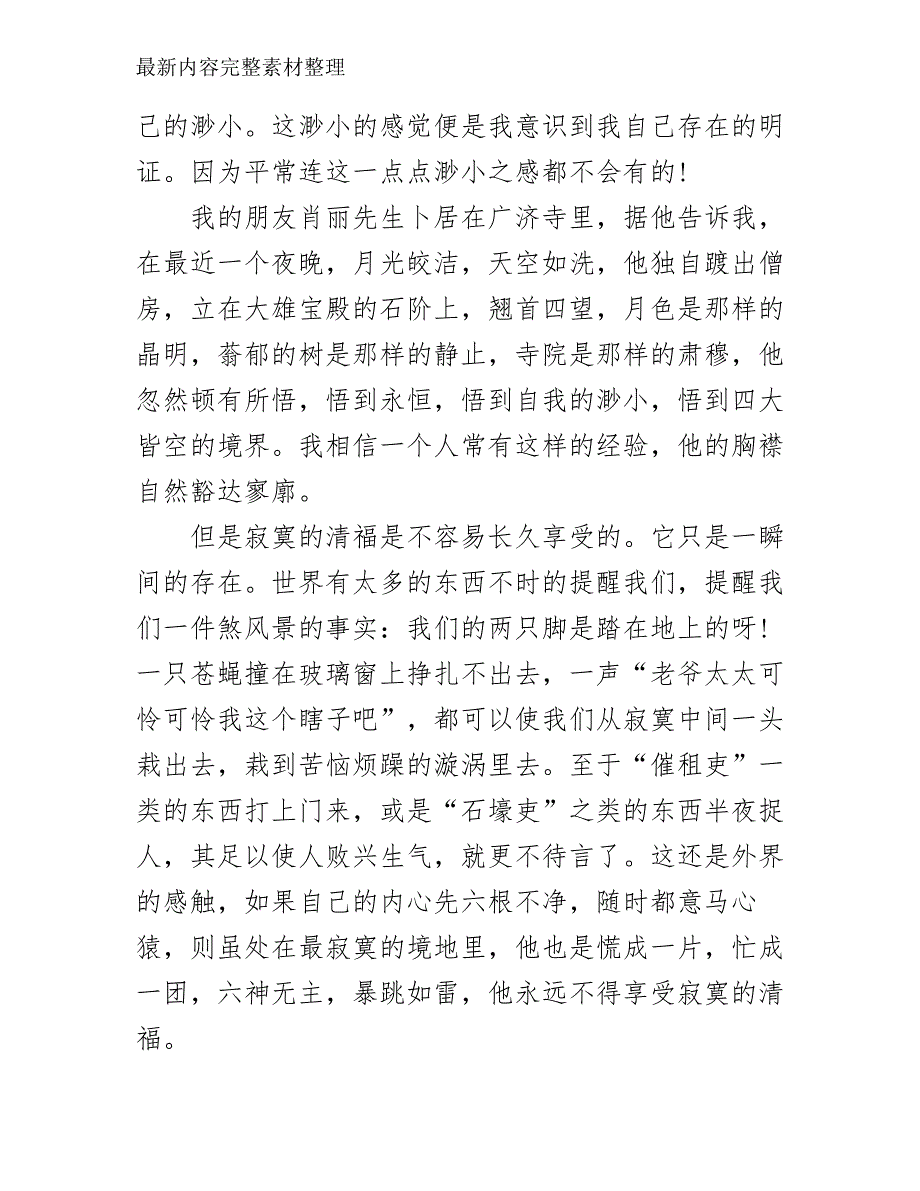 最新内容完整素材整理
己的渺小。这渺小的感觉便是我意识到我自己存在的明
证。因为平常连这一点点渺小之感都不会有的!
我的朋友肖丽先生卜居在广济寺里，据他告诉我，
在最近一个夜晚，月光皎洁，天空如洗，他独自踱出僧
房，立在大雄宝殿的石阶上，翘首四望，月色是那样的
晶明，蓊郁的树是那样的静止，寺院是那样的肃穆，他
忽然顿有所悟，悟到永恒，悟到自我的渺小，悟到四大
皆空的境界。我相信一个人常有这样的经验，他的胸襟
自然豁达寥廓。
但是寂寞的清福是不容易长久享受的。它只是一瞬
间的存在。世界有太多的东西不时的提醒我们，提醒我
们一件煞风景的事实：我们的两只脚是踏在地上的呀!
一只苍蝇撞在玻璃窗上挣扎不出去，一声“老爷太太可
怜可怜我这个瞎子吧”，都可以使我们从寂寞中间一头
栽出去，栽到苦恼烦躁的漩涡里去。至于“催租吏”一
类的东西打上门来，或是“石壕吏”之类的东西半夜捉
人，其足以使人败兴生气，就更不待言了。这还是外界
的感触，如果自己的内心先六根不净，随时都意马心
猿，则虽处在最寂寞的境地里，他也是慌成一片，忙成
一团，六神无主，暴跳如雷，他永远不得享受寂寞的清
福。